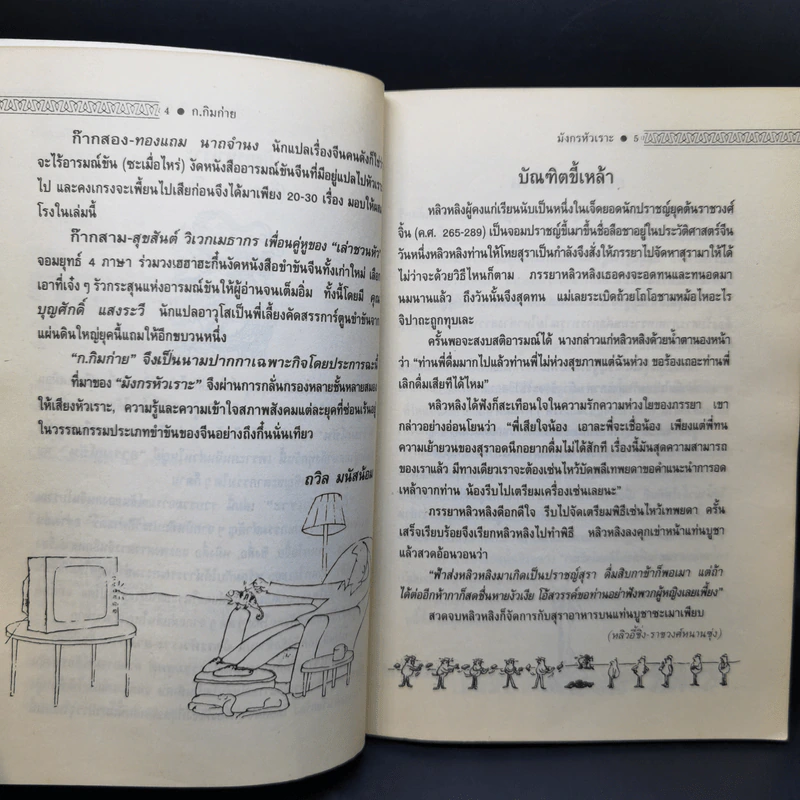 4 ● ก.กิมก่าย
ก๊ากสอง-ทองแถม นาถจำนง นักแปลเรื่องจีนคนดังก็ใช่ว่า
จะไร้อารมณ์ขัน (ซะเมื่อไหร่) งัดหนังสืออารมณ์ขันจีนที่มีอยู่แปลไปหัวเราะ
ไป และคงเกรงจะเพี้ยนไปเสียก่อนจึงได้มาเพียง 20-30 เรื่อง มอบให้ผสม
โรงในเล่มนี้
ก๊ากสาม-สุขสันต์ วิเวกเมธากร เพื่อนคู่หูของ "เล่าชวนหัว"
จอมยุทธ์ 4 ภาษา ร่วมวงเฮฮาฮะกึ๋นงัดหนังสือขำขันจีนทั้งเก่าใหม่ เลือก
เอาที่เจ๋ง ๆ รัวกระสุนแห่งอารมณ์ขันให้ผู้อ่านจนเต็มอิ่ม ทั้งนี้โดยมี คุณ
บุญศักดิ์ แสงระวี นักแปลอาวุโสเป็นพี่เลี้ยงคัดสรรการ์ตูนขำขันจาก
แผ่นดินใหญ่ยุคนี้แถมให้อีกขบวนหนึ่ง
"ก.กิมก่าย" จึงเป็นนามปากกาเฉพาะกิจโดยประการฉะนี้
ที่มาของ "มังกรหัวเราะ" จึงผ่านการกลั่นกรองหลายชั้นหลายสมอง
ให้เสียงหัวเราะ, ความรู้และความเข้าใจสภาพสังคมแต่ละยุคที่ซ่อนเร้นอยู่
ในวรรณกรรมประเภทขำขันของจีนอย่างถึงกึ๋นนั่นเทียว
ถวิล มนัสน้อม
มังกรหัวเราะ ● 5
บัณฑิตขี้เหล้า
หลิวหลิงผู้คงแก่เรียนนับเป็นหนึ่งในเจ็ดยอดนักปราชญ์ยุคต้นราชวงศ์
จิ้น (ค.ศ. 265-289) เป็นจอมปราชญ์ขี้เมาขึ้นชื่อลือชาอยู่ในประวัติศาสตร์จีน
วันหนึ่งหลิวหลิงท่านให้โหยสุราเป็นกำลังจึงสั่งให้ภรรยาไปจัดหาสุรามาให้ได้
ไม่ว่าจะด้วยวิธีไหนก็ตาม ภรรยาหลิวหลิงเธอคงจะอดทนและทนอดมา
นมนานแล้ว ถึงวันนั้นจึงสุดทน แม่เลยระเบิดถ้วยโถโอชามหม้อไหอะไร
จิปาถะถูกทุบเละ
ครั้นพอจะสงบสติอารมณ์ได้ นางกล่าวแก่หลิวหลิงด้วยน้ำตานองหน้า
ว่า "ท่านพี่ดื่มมากไปแล้วท่านพี่ไม่ห่วงสุขภาพแต่ฉันห่วง ขอร้องเถอะท่านพี่
เลิกดื่มเสียทีได้ไหม"
หลิวหลิงได้ฟังก็สะเทือนใจในความรักความห่วงใยของภรรยา เขา
กล่าวอย่างอ่อนโยนว่า "พี่เสียใจน้อง เอาละพี่จะเชื่อน้อง เพียงแต่พี่ทน
ความเย้ายวนของสุราอดนึกอยากดื่มไม่ได้สักที เรื่องนี้มันสุดความสามารถ
ของเราแล้ว มีทางเดียวเราจะต้องเซ่นไหว้บัดพลีเทพยดาขอคำแนะนำการอด
เหล้าจากท่าน น้องรีบไปเตรียมเครื่องเซ่นเลยนะ"
ภรรยาหลิวหลิงดีอกดีใจ รีบไปจัดเตรียมพิธีเซ่นไหว้เทพยดา ครั้น
เสร็จเรียบร้อยจึงเรียกหลิวหลิงไปทำพิธี หลิวหลิงลงคุกเข่าหน้าแท่นบูชา
แล้วสวดอ้อนวอนว่า
"ฟ้าส่งหลิวหลิงมาเกิดเป็นปราชญ์สุรา ดื่มสิบกาข้าก็พอเมา แต่ถ้า
ได้ต่ออีกห้ากาก็สดชื่นหายงัวเงีย โอ้สวรรค์ขอท่านอย่าฟังพวกผู้หญิงเลยเพี้ยง"
สวดจบหลิวหลิงก็จัดการกับสุราอาหารบนแท่นบูชาซะเมาเพียบ
(หลิวอี้ชิ่ง-ราชวงศ์หนานซุ่ง)